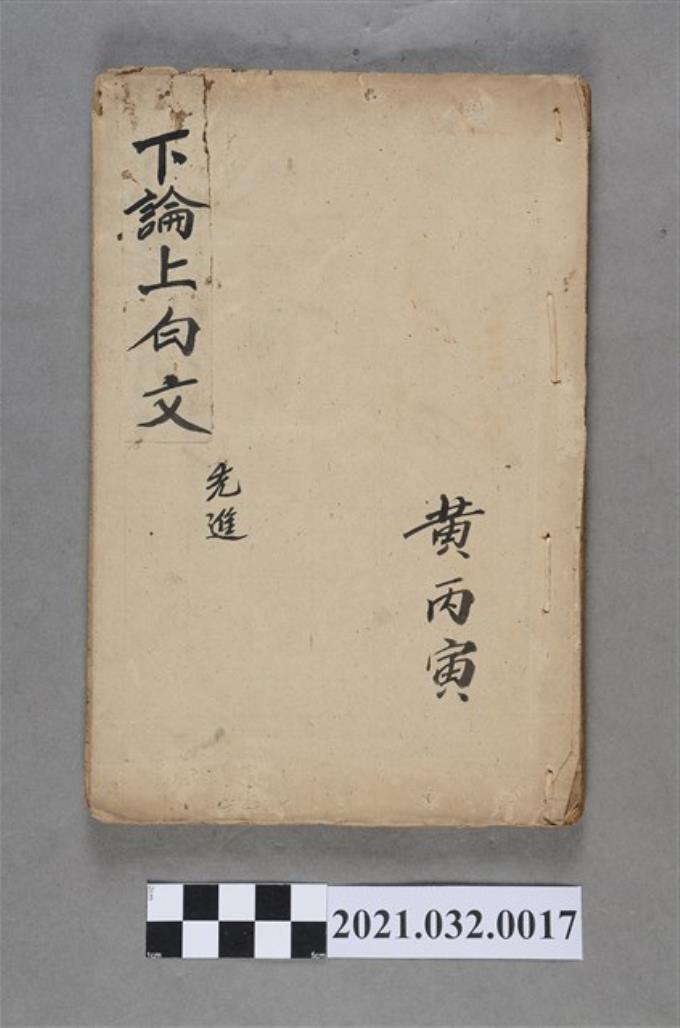 下論上白文
先進
黃丙寅
2021.032.0017
1cm
5cm